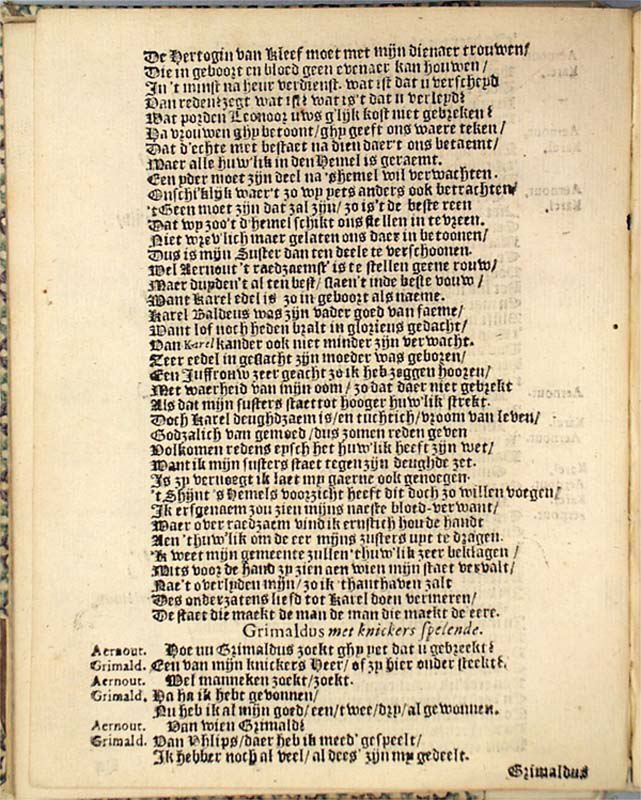 De Hertogin van Kleef moet met mijn dienaer trouwen/
Die in geboort en bloed geen evenaer kan houwen/
In 't minst na heur verdienst. wat ist dat u verscheyd
Van reden: zegt wat ist? wat is't dat u verleyd?
Wat porden Leonoor uws g'lijk kost niet gebreken?
Ha vrouwen ghy betoont/ ghy geeft ons waere teken/
Dat d'echte met bestaet na dien daer't ons betaemt/
Maer alle huw'lik in den Hemel is geraemt.
Een yder moet zijn deel na 'shemel wil verwachten.
Onschiklijk waer't zo wy yets anders ook betrachten/
'tGeen moet zijn dat zal zijn/ zo is't de beste reen
Dat wy zoo't d'hemel schikt ons stellen in tevreen.
Niet wrev'lich maer gelaten ons daer in betoonen/
Dus is mijn Suster dan ten deele te verschoonen.
Wel Aernout 't raedzaemst' is te stellen geene rouw/
Maer duyden't al ten best/ slaen't inde beste vouw/
Want Karel edel is zo in geboort als naeme.
Karel Baldeus was zijn vader goed van faeme/
Want lof noch heden bralt in glorieus gedacht/
Van Karel kander ook niet minder zijn verwacht.
Zeer eedel in geslacht zijn moeder was geboren/
Een Juffrouw zeer geacht zo ik heb zeggen hooren/
Met waerheid van mijn oom/ zo dat daer niet gebrekt
Als dat mijn susters staet tot hooger huw'lik strekt.
Doch Karel deughdzaem is/ en tuchtich/ vroom van leven/
Godzalich van gemoed/ dus zomen reden geven
Volkomen redens eysch het huw'lik heeft zijn wet/
Want ik mijn susters staet tegen zijn deughde zet.
Is zy vernoegt ik laet my gaerne ook genoegen.
't Shijnt 's Hemels voorzicht heeft dit doch zo willen voegen/
Ik ersgenaem zou zien mijns naeste bloed-verwant/
Waer over raedzaem vind ik ernstich hou de handt
Aen 'thuw'lik om de eer mijns zusters uyt te dragen.
'k Weet mijn gemeente zullen 'thuw'lik zeer beklagen/
Mits voor de hand zy zien aen wien mijn staet vervalt/
Nae't overlyden mijn/ zo ik thanthaven zalt
Des onderzatens liefd tot Karel doen vermeren/
De staet die maekt de man de man die maekt de eere.
Grimaldus met knickers spelende.
Aernout. Hoe nu Grimaldus zoekt ghy yet dat u gebreekt?
Grimald. Een van mijn knickers Heer/ of zy hier onder steekt?
Aernout. Wel manneken zoekt/ zoekt.
Grimald. Ha ha ik hebt gevonnen/
Nu heb ik al mijn goed/ een/ twee/ dry/ al gewonnen.
Aernout. Van wien Grimald?
Grimald. Van Phlips/ daer heb ik meed' gespeelt/
Ik hebber noch al veel/ al dees' zijn my gedeelt.
Grimaldus